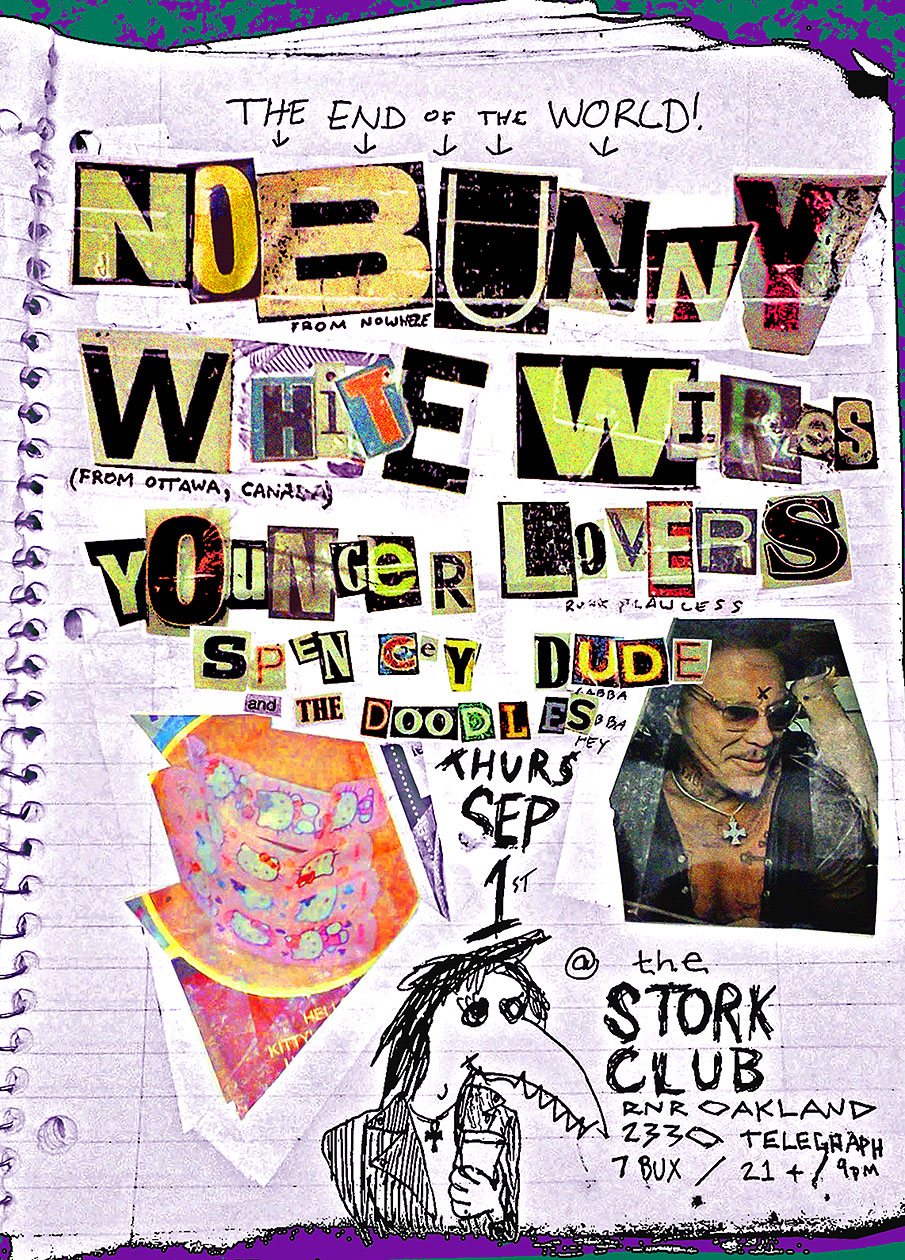 THE END OF THE WORLD!
NOBUNNY
FROM NOWHERE
WHiTE WIReS
(FROM OTTAWA, CANADA)
YOUNGeR LOVERS
PUNK FLAWLESS
SPENCeY DUDE
and THE DOODLES
GABBA
GABBA
HEY
THURS
SEP
1ST
@ the
STORK
CLUB
RNR OAKLAND
2330 TELEGRAPH
7 BUX / 21+ / 9pm
HELLO
KITTY